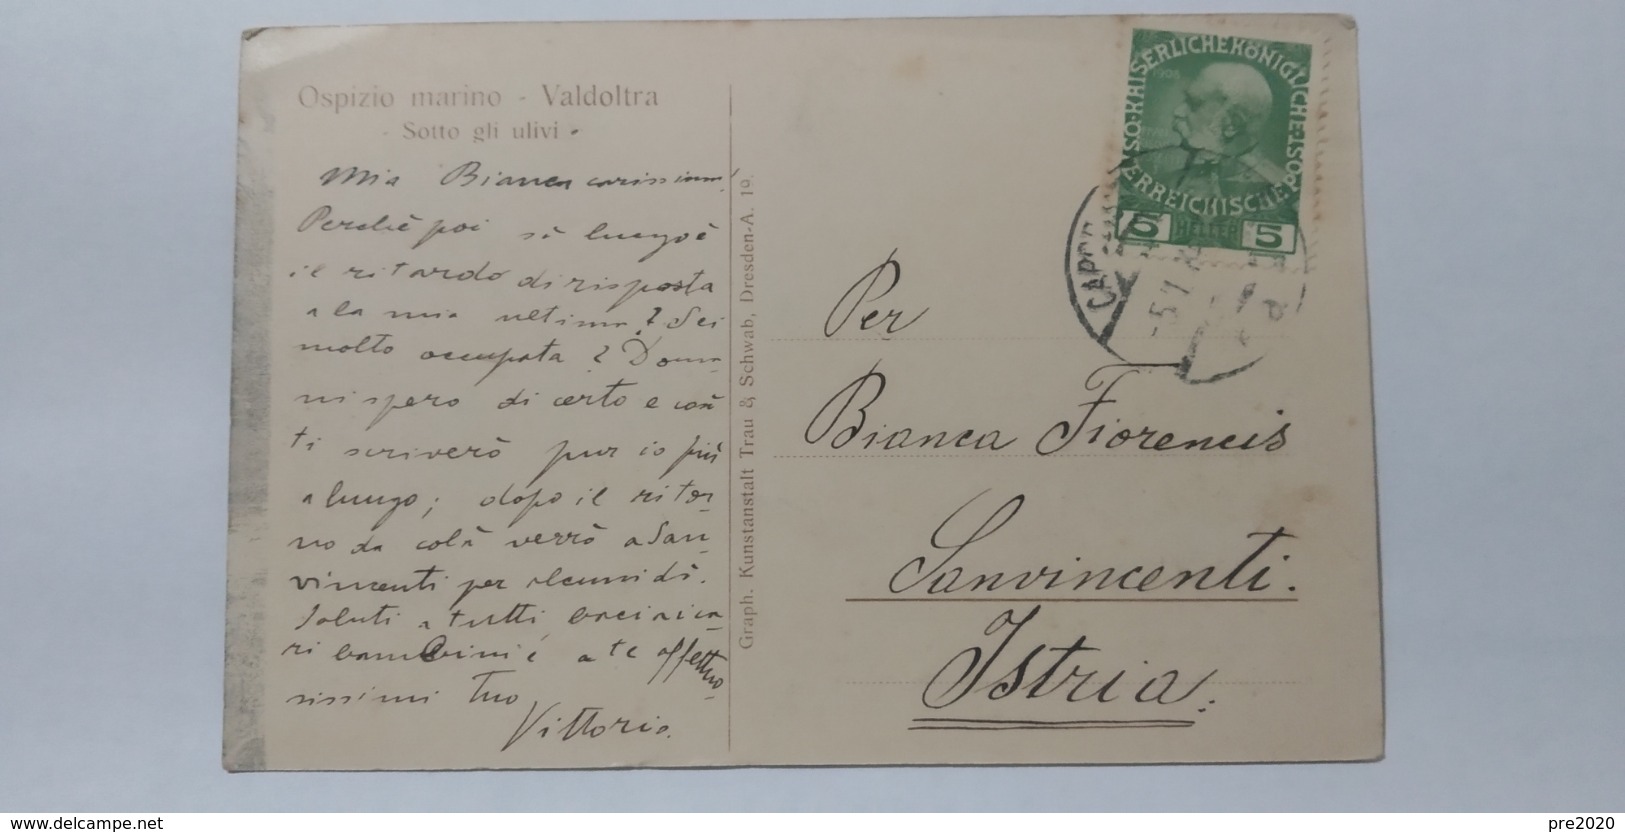 Ospizio marino - Valdoltra
- Sotto gli ulivi -
Mia Bianca carissima!
Perchè poi sì lungo è
il ritardo di risposta
a la mia ultima? Sei
molto occupata? Doma-
ni spero di certo e così
ti scriverò pur io più
a lungo; dopo il ritor-
no da colà verrò a San-
vincenti per alcuni dì.
Saluti a tutti, baci ai ca-
ri bambini e a te affettuo-
sissimi Tuo
Vittorio.
Graph. Kunstanstalt Trau & Schwab, Dresden-A. 19.
KAISERLICHEKÖNIGLICHE
ÖSTERREICHISCHE POST
1908
5 HELLER 5
CAPOD
-5 1
Per
Bianca Fiorencis
Sanvincenti.
Istria.
www.delcampe.net
pre2020